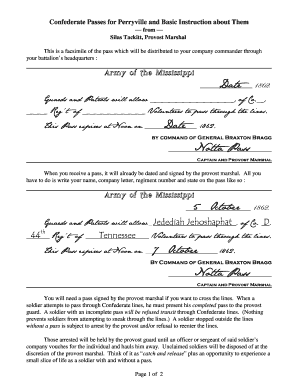 Confederate Passes for Perryville and Basic Instruction about Them
— from —
Silas Tackitt, Provost Marshal
This is a facsimile of the pass which will be distributed to your company commander through
your battalion's headquarters :
Army of the Mississippi
Date 1862
Guards and Patrols will allow of Co.
Reg't of Volunteers to pass through the lines.
This Pass expires at Noon on Date 1862.
BY COMMAND OF GENERAL BRAXTON BRAGG
Notta Pass
CAPTAIN AND PROVOST MARSHAL
When you receive a pass, it will already be dated and signed by the provost marshal. All you
have to do is write your name, company letter, regiment number and state on the pass like so :
Army of the Mississippi
5 October 1862
Guards and Patrols will allow Jedediah Jehoshaphat of Co. D
44th Reg't of Tennessee Volunteers to pass through the lines.
This Pass expires at Noon on 7 October 1862.
BY COMMAND OF GENERAL BRAXTON BRAGG
Notta Pass
CAPTAIN AND PROVOST MARSHAL
You will need a pass signed by the provost marshal if you want to cross the lines. When a
soldier attempts to pass through Confederate lines, he must present his completed pass to the provost
guard. A soldier with an incomplete pass will be refused transit through Confederate lines. (Nothing
prevents soldiers from attempting to sneak through the lines.) A soldier stopped outside the lines
without a pass is subject to arrest by the provost and/or refusal to reenter the lines.
Those arrested will be held by the provost guard until an officer or sergeant of said soldier's
company vouches for the individual and hauls him away. Unclaimed soldiers will be disposed of at the
discretion of the provost marshal. Think of it as "catch and release" plus an opportunity to experience a
small slice of life as a soldier with and without a pass.
Page 1 of 2